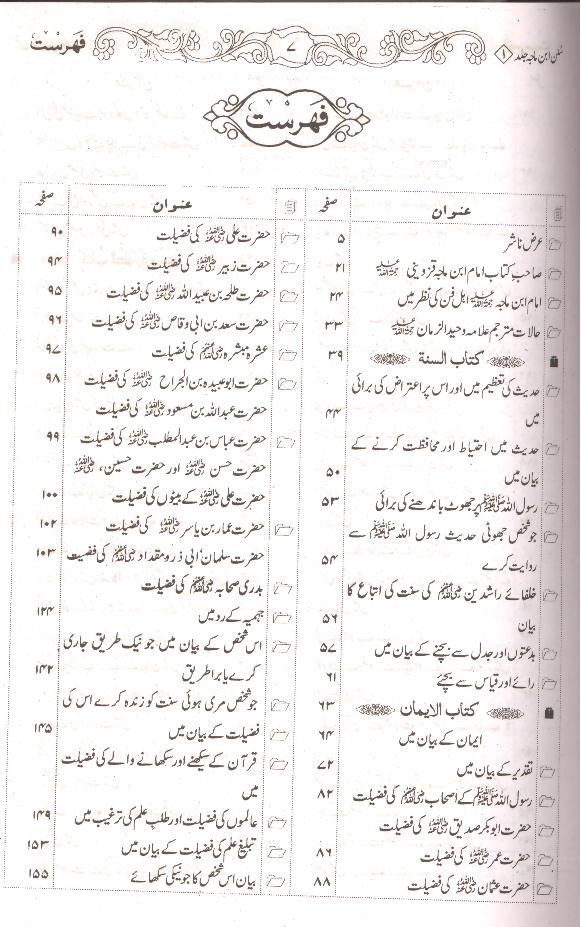 سنن ابن ماجہ جلد ۱
۷
فہرست
فہرست
عنوان صفحہ
عرض ناشر ۵
صاحب کتاب امام ابن ماجہ قزوینی رحمۃ اللہ علیہ ۲۱
امام ابن ماجہ رحمۃ اللہ علیہ اہل فن کی نظر میں ۲۴
حالات مترجم علامہ وحید الزمان رحمۃ اللہ علیہ ۳۳
کتاب السنة ۳۹
حدیث کی تعظیم میں اور اس پر اعتراض کی برائی
میں ۴۴
حدیث میں احتیاط اور محافظت کرنے کے
بیان میں ۵۰
رسول اللہ ﷺ پر جھوٹ باندھنے کی برائی ۵۳
جو شخص جھوٹی حدیث رسول اللہ ﷺ سے
روایت کرے ۵۴
خلفائے راشدین رضی اللہ عنہم کی سنت کی اتباع کا
بیان ۵۶
بدعتوں اور جدل سے بچنے کے بیان میں ۵۷
رائے اور قیاس سے بچئے ۶۱
کتاب الایمان ۶۳
ایمان کے بیان میں ۶۴
تقدیر کے بیان میں ۷۲
رسول اللہ ﷺ کے اصحاب رضی اللہ عنہم کی فضیلت ۸۲
حضرت ابوبکر صدیق رضی اللہ عنہ کی فضیلت
حضرت عمر رضی اللہ عنہ کی فضیلت ۸۶
حضرت عثمان رضی اللہ عنہ کی فضیلت ۸۸
عنوان صفحہ
حضرت علی رضی اللہ عنہ کی فضیلت ۹۰
حضرت زبیر رضی اللہ عنہ کی فضیلت ۹۴
حضرت طلحہ بن عبید اللہ رضی اللہ عنہ کی فضیلت ۹۵
حضرت سعد بن ابی وقاص رضی اللہ عنہ کی فضیلت ۹۶
عشرہ مبشرہ رضی اللہ عنہم کی فضیلت ۹۷
حضرت ابوعبیدہ بن الجراح رضی اللہ عنہ کی فضیلت ۹۸
حضرت عبداللہ بن مسعود رضی اللہ عنہ کی فضیلت
حضرت عباس بن عبدالمطلب رضی اللہ عنہ کی فضیلت ۹۹
حضرت حسن رضی اللہ عنہ اور حضرت حسین، رضی اللہ عنہ
حضرت علی رضی اللہ عنہ کے بیٹوں کی فضیلت ۱۰۰
حضرت عمار بن یاسر رضی اللہ عنہ کی فضیلت ۱۰۲
حضرت سلمان ابی ذر و مقداد رضی اللہ عنہم کی فضیت ۱۰۳
بدری صحابہ رضی اللہ عنہم کی فضیلت
جہمیہ کے رد میں ۱۲۴
اس شخص کے بیان میں جو نیک طریق جاری
کرے یا برا طریق ۱۴۲
جو شخص مری ہوئی سنت کو زندہ کرے اس کی
فضیلت کے بیان میں ۱۴۵
قرآن کے سیکھنے اور سکھانے والے کی فضیلت
میں
عالموں کی فضیلت اور طلب علم کی ترغیب میں ۱۴۹
تبلیغ علم کی فضیلت کے بیان میں ۱۵۳
بیان اس شخص کا جو نیکی سکھائے ۱۵۵